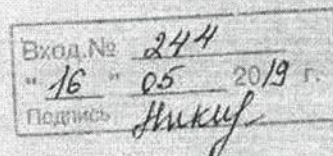 Вход.№ 244
"16" 05 2019 г.
Подпись